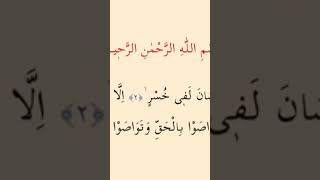 ـمِ اللّٰهِ الرَّحْمٰنِ الرَّحٖيـ
ـسَانَ لَفٖي خُسْرٍۙ ﴿٢﴾ اِلَّا
ـاصَوْا بِالْحَقِّ وَتَوَاصَوْا